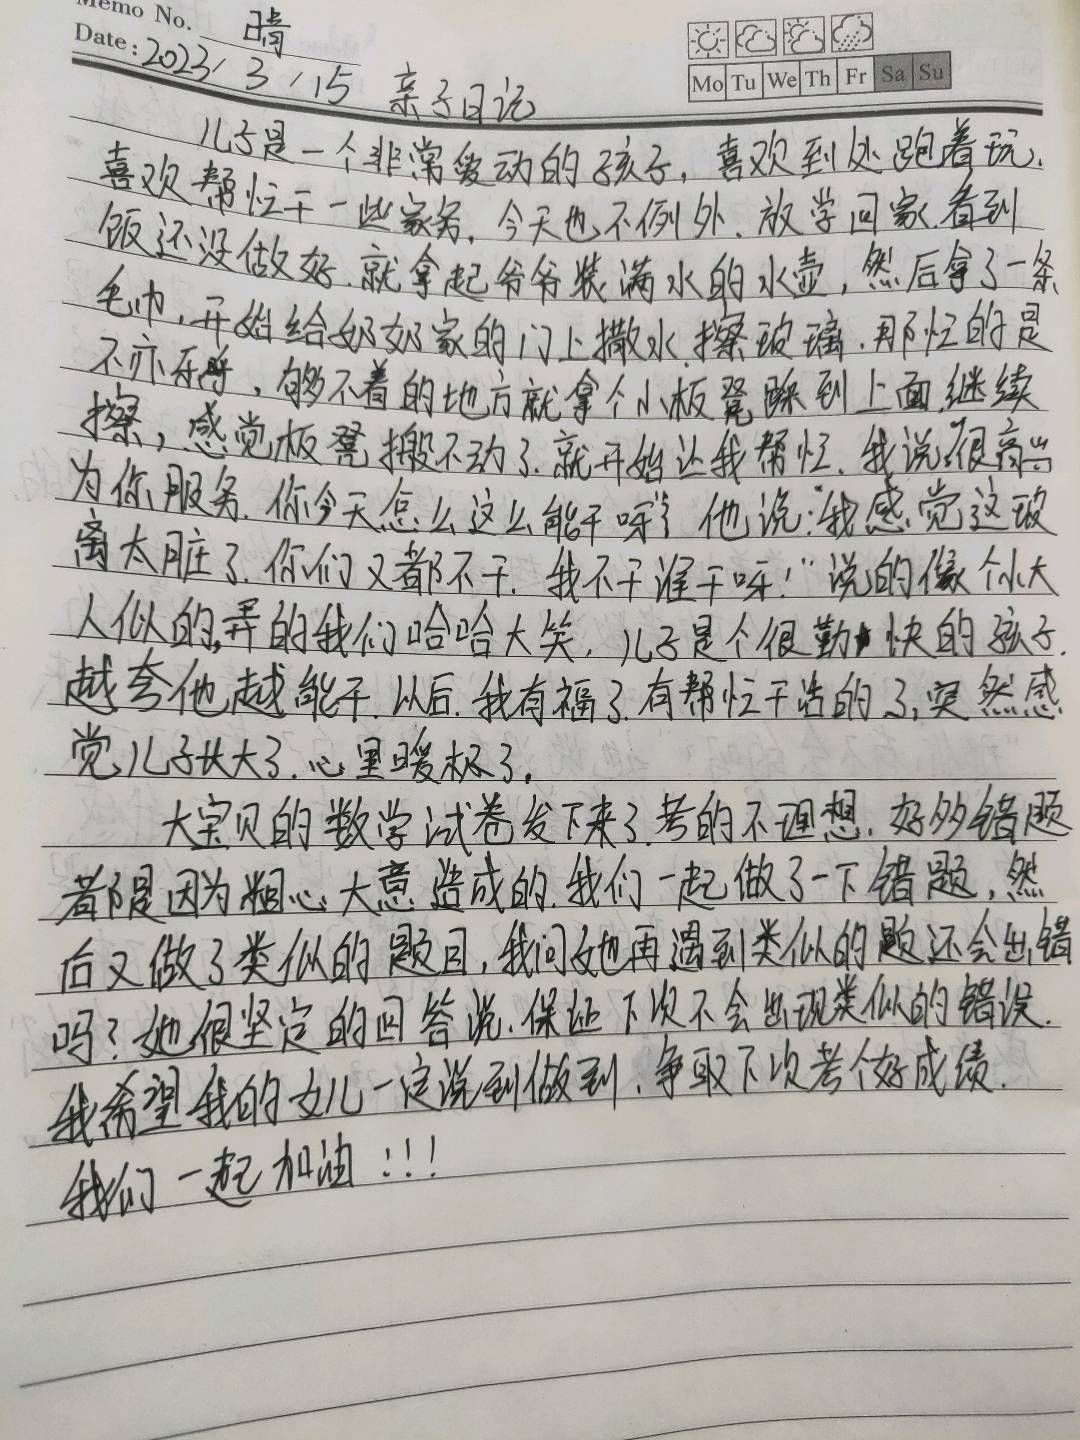 Memo No. 晴
Date: 2023.3.15 亲子日记
Mo Tu We Th Fr Sa Su
儿子是一个非常爱动的孩子,喜欢到处跑着玩.
喜欢帮忙干一些家务.今天也不例外.放学回家.看到
饭还没做好.就拿起爷爷装满水的水壶,然后拿了一条
毛巾,开始给奶奶家的门上撒水.擦玻璃.那忙的是
不亦乐乎,够不着的地方就拿个小板凳踩到上面.继续
擦,感觉板凳搬不动了.就开始让我帮忙.我说:"很高兴
为你服务.你今天怎么这么能干呀?"他说:"我感觉这玻
离太脏了.你们又都不干.我不干谁干呀!"说的像个小大
人似的,弄的我们哈哈大笑.儿子是个很勤快的孩子.
越夸他越能干.以后.我有福了.有帮忙干活的了,突然感
觉儿子长大了.心里暖极了.
大宝贝的数学试卷发下来了.考的不理想.好多错题
都是因为粗心大意造成的.我们一起做了一下错题,然
后又做了类似的题目,我问她再遇到类似的题还会出错
吗?她很坚定的回答说.保证下次不会出现类似的错误.
我希望我的女儿一定说到做到.争取下次考个好成绩.
我们一起加油!!!